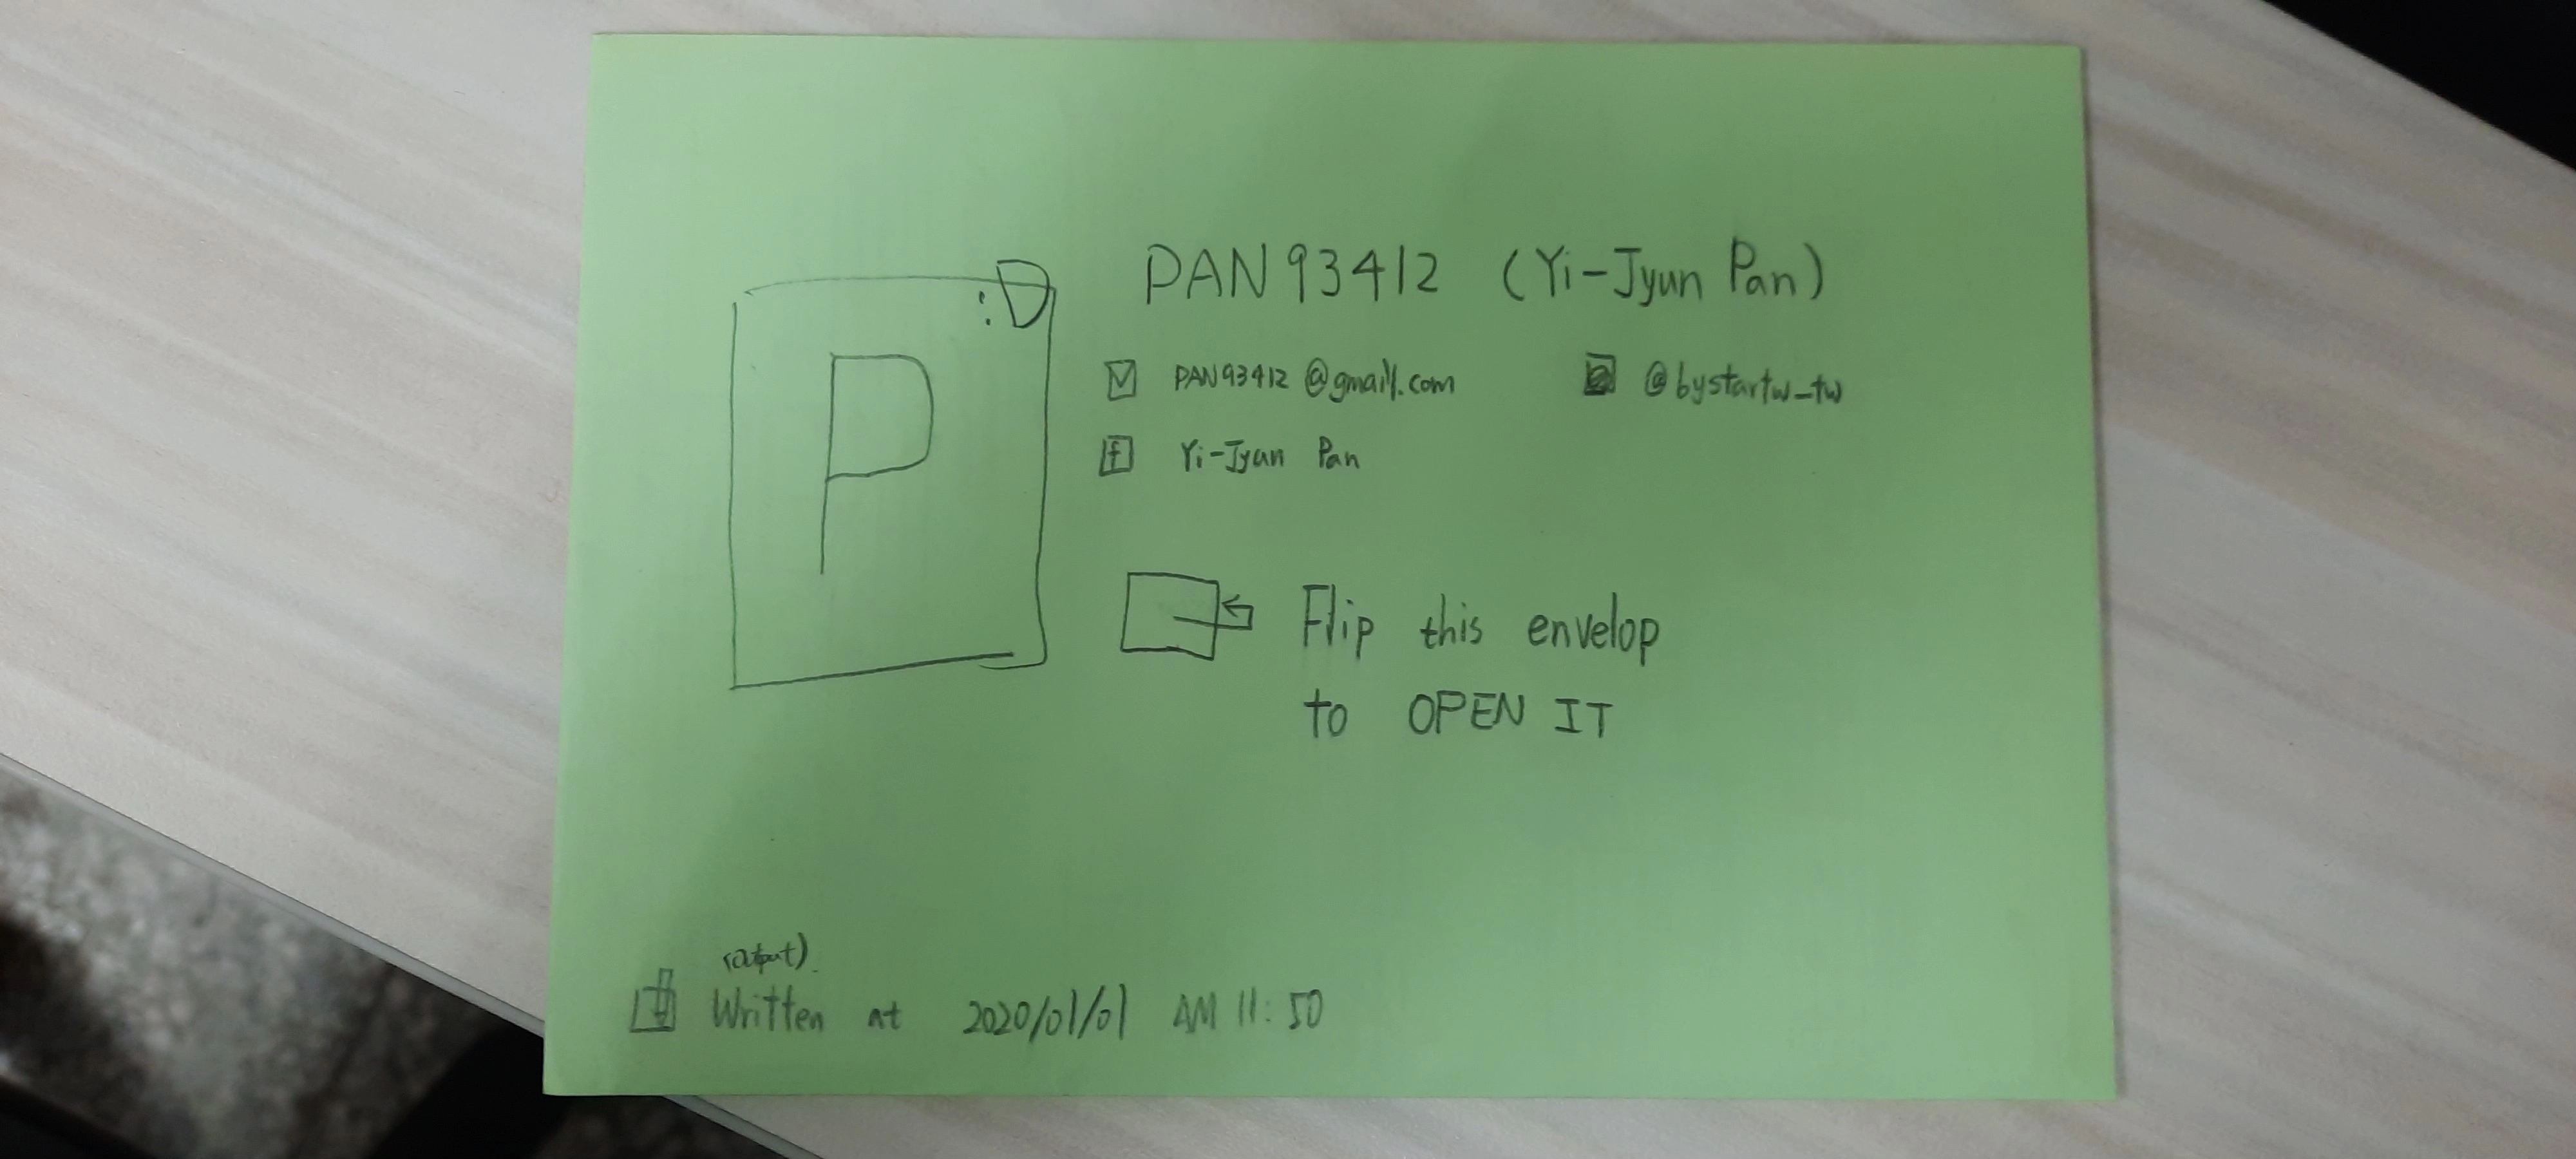 :D
P
PAN93412 (Yi-Jyun Pan)
PAN93412@gmail.com @bystartw_tw
f Yi-Jyun Pan
Flip this envelop
to OPEN IT
(Output)
Written at 2020/01/01 AM 11:50